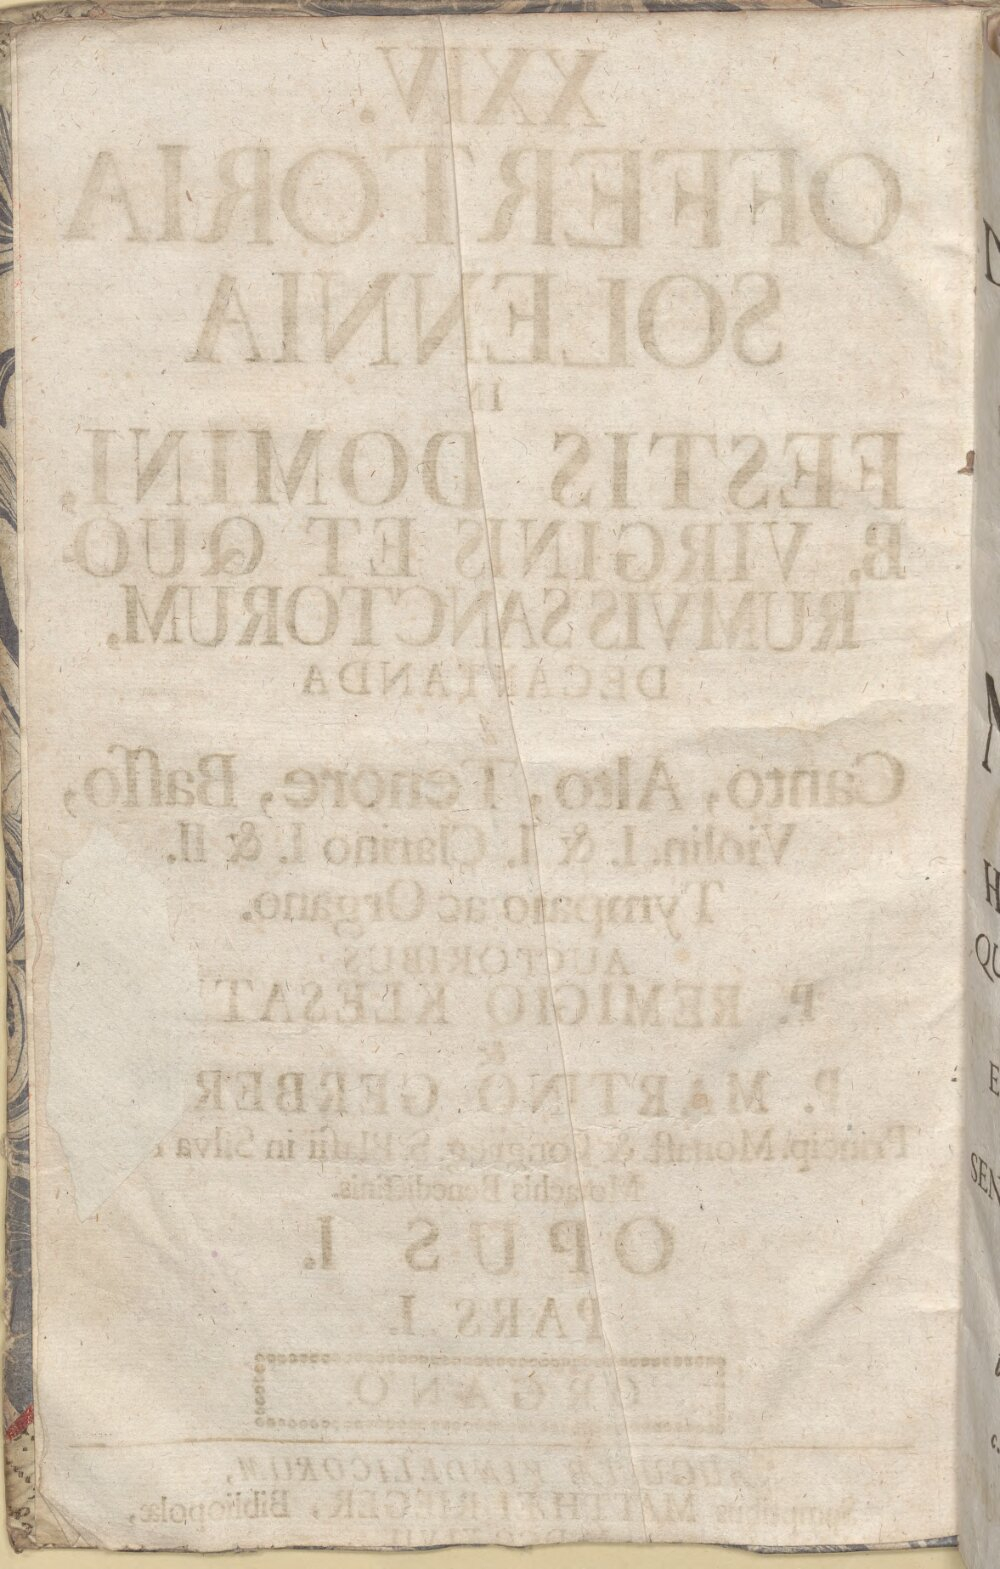 XXIV.
OFFERTORIA
SOLENNIA
IN
FESTIS DOMINI,
B. VIRGINIS ET QUO-
RUMVIS SANCTORUM,
DECANTANDA
à
Canto, Alto, Tenore, Basso,
Violin. I. & I. Clarino I. & II.
Tympano ac Organo.
AUCTORIBUS
P. REMIGIO KLESAT
&
P. MARTINO GERBER
Princip. Monast. & Congreg. S. Blasii in Silva
Monachis Benedictinis.
OPUS I.
PARS I.
ORGANO.
VINDELICORUM,
Sumptibus MATTHÆI RIEGER, Bibliopolæ,